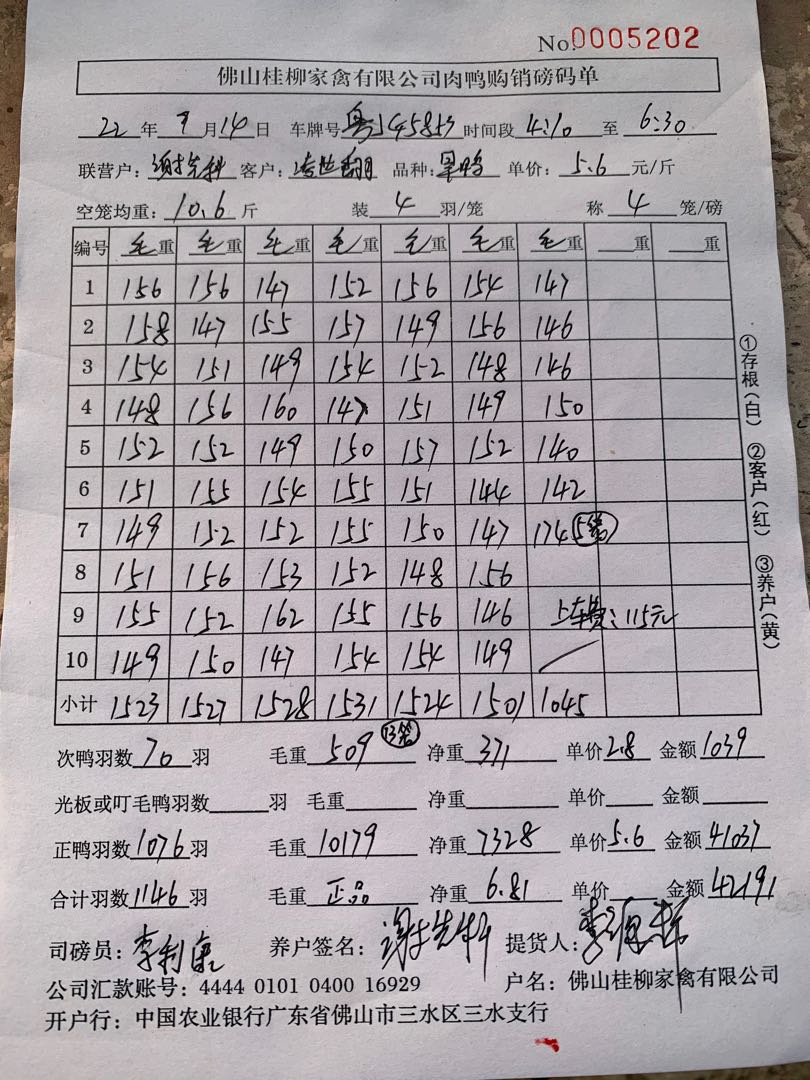 No.0005202
佛山桂柳家禽有限公司肉鸭购销磅码单
22 年 9 月 14 日 车牌号 粤J45857 时间段 4:10 至 6:30
联营户: 谢先科 客户: 品种: 单价: 5.6 元/斤
空笼均重: 10.6 斤 装 4 羽/笼 称 4 笼/磅
编号 毛重 毛重 毛重 毛重 毛重 毛重 毛重 重 重
1 156 156 147 152 156 154 147
2 158 147 155 157 149 156 146
3 154 151 149 154 152 148 146
4 148 156 160 147 151 149 150
5 152 152 149 150 157 152 140
6 151 155 154 155 151 144 142
7 149 152 152 155 150 147 174 5笼
8 151 156 153 152 148 156
9 155 152 162 155 156 146 上车费:115元
10 149 150 147 154 154 149
小计 1523 1527 1528 1531 1524 1501 1045
13笼
次鸭羽数 70 羽 毛重 509 净重 371 单价 2.8 金额 1039
光板或叮毛鸭羽数 羽 毛重 净重 单价 金额
正鸭羽数 1076 羽 毛重 10179 净重 7328 单价 5.6 金额 41037
合计羽数 1146 羽 毛重 正品 净重 6.81 单价 金额 42191
司磅员: 李利康 养户签名: 谢先科 提货人:
公司汇款账号: 4444 0101 0400 16929 户名: 佛山桂柳家禽有限公司
开户行: 中国农业银行广东省佛山市三水区三水支行
①存根(白) ②客户(红) ③养户(黄)